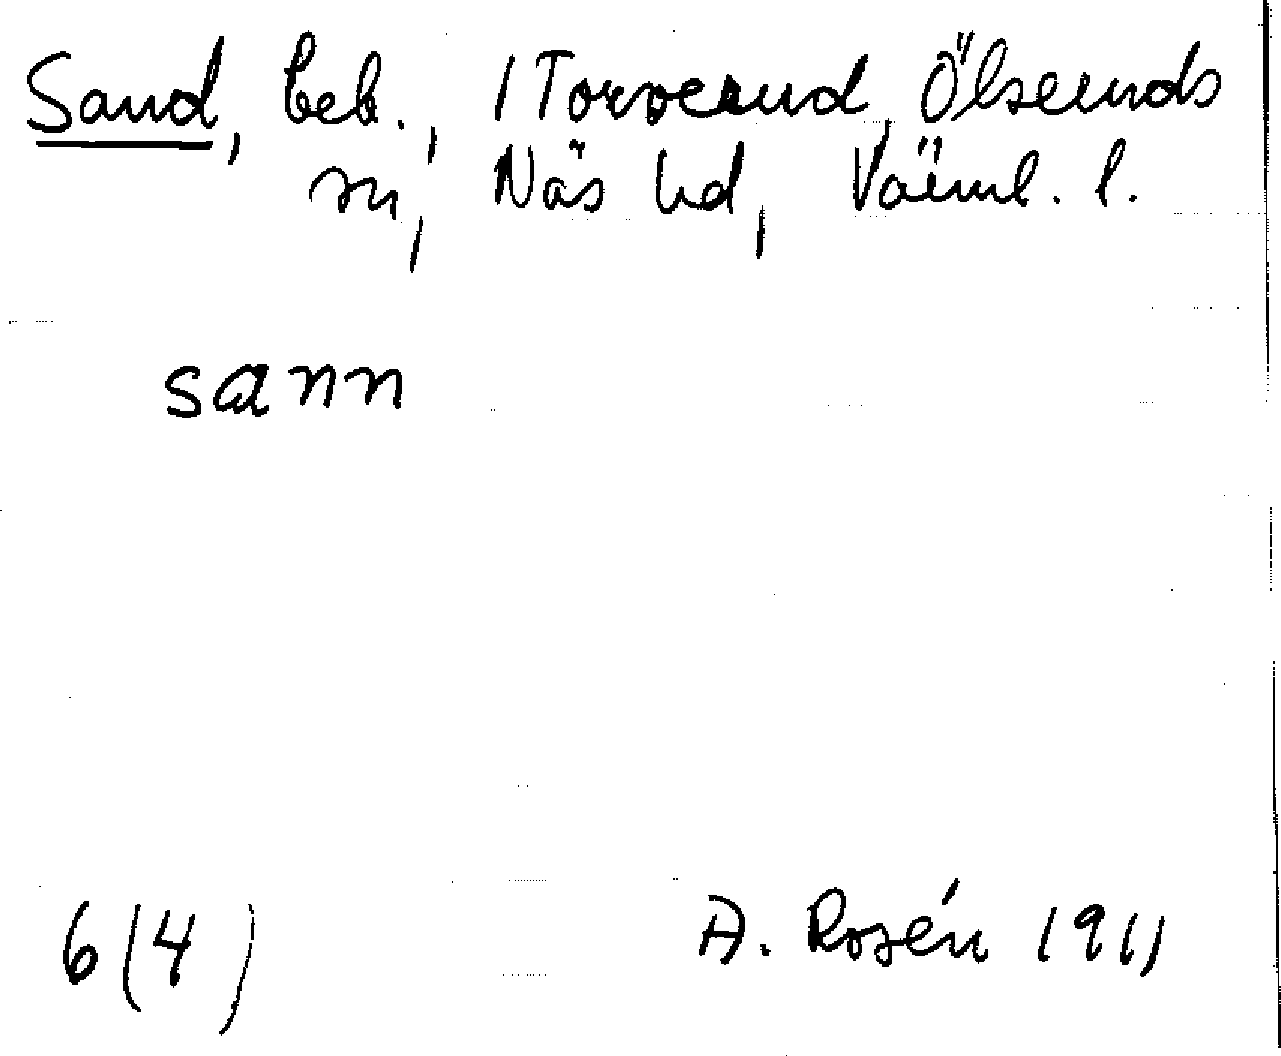 Sand, beb., 1 Torserud, Ölseruds
sn, Näs hd, Värml. l.
sann
6(4) A. Rosén 1911